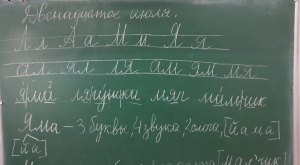 Двенадцатое июля.
Л л А а М м Я я
ал. ял ля ам ям мя
лягушки мяч мальчик
Яма – 3 буквы, 4 звука, 2 слога, [йама]
[йа]